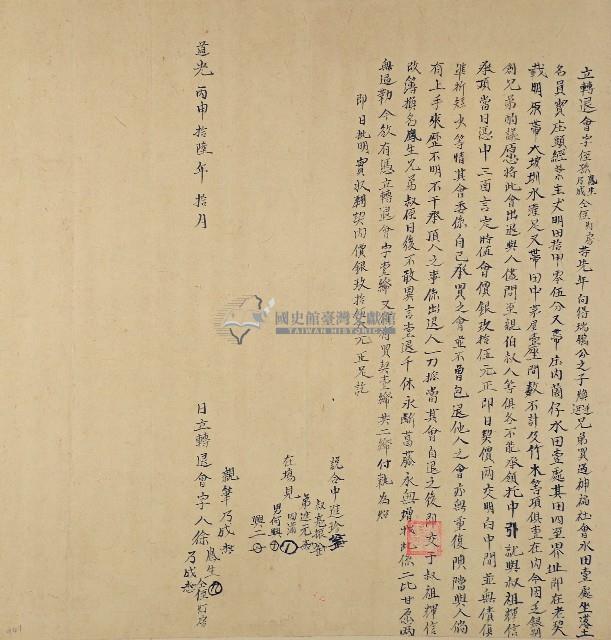 立轉退會字侄孫鳳生乃成仝侄灯房等先年向得瑞鵬分之子兄弟買過神福社會水田壹處坐落土
名員寶庄頭經業主丈明田拾甲零伍分又帶庄內菌仔水田壹處其田四至界址即在老契
載明原帶大坡圳水灌足又帶田中茅屋壹座間數不計及竹木等項俱壹在內今因乏銀別
創兄弟酌議愿將此會出退與人儘問至親伯叔人等俱各不能承領托中引就與叔祖輝信
承頂當日憑中三面言定時值會價銀玖拾伍元正即日契價兩交明白中間並無債貨
準折短少等情其會委係自己承買之會並不曾包退他人之會亦無重復限隔與人倘
有上手來歷不明不干承頂人之事係出退人一力抵當其會自退之後即交于叔祖輝信
改簿換名鳳生兄弟叔侄日後不敢異言壹退千休永斷葛藤永無增找此係二比甘愿兩
無逼勒今欲有憑立轉退會字壹紙又帶買契壹紙共二紙付執為照
即日批明實收到契內價銀玖拾伍元正足訖
說合中進珍
叔意振
弟進元
在塲見四滿
男何興
興二
親筆乃成
道光丙申拾陸年拾月 日立轉退會字人徐鳳生乃成仝侄灯房
國史館臺灣文獻館
TAIWAN HISTORICA